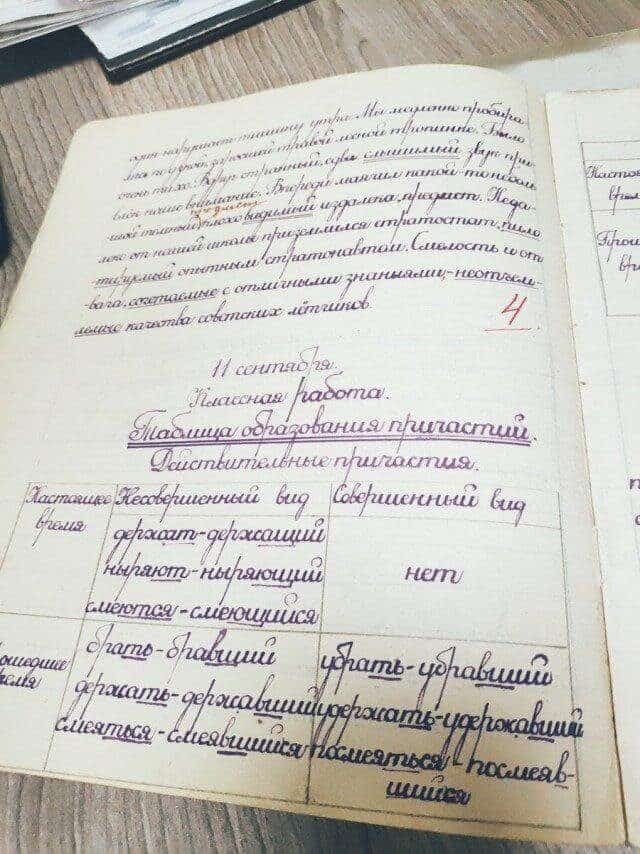 нарушает тишину утра. Мы медленно пробира-
лись по узкой, заросшей травой лесной тропинке. Было
очень тихо. Вдруг странный, едва слышимый звук при-
влёк наше внимание. Впереди маячил какой-то неболь
шой тёмный, плохо видимый издалека, предмет. Неда-
леко от нашей школы приземлился стратостат, пило
тируемый опытным стратонавтом. Смелость и от
вага, сочетаемые с отличными знаньями,-неотъем-
лемые качества советских лётчиков.
4
11 сентября.
Классная работа.
Таблица образования причастий.
Действительные причастия.
Настоящее время
Несовершенный вид
Совершенный вид
держат-держащий
ныряют-ныряющий
смеются-смеющийся
нет
ошедшее
ремя
брать-бравший
держать-державший
смеяться-смеявшийся
убрать-убравший
удержать-удержавший
посмеяться-посмеяв-
шийся
Настоя
врем
Прош
вр